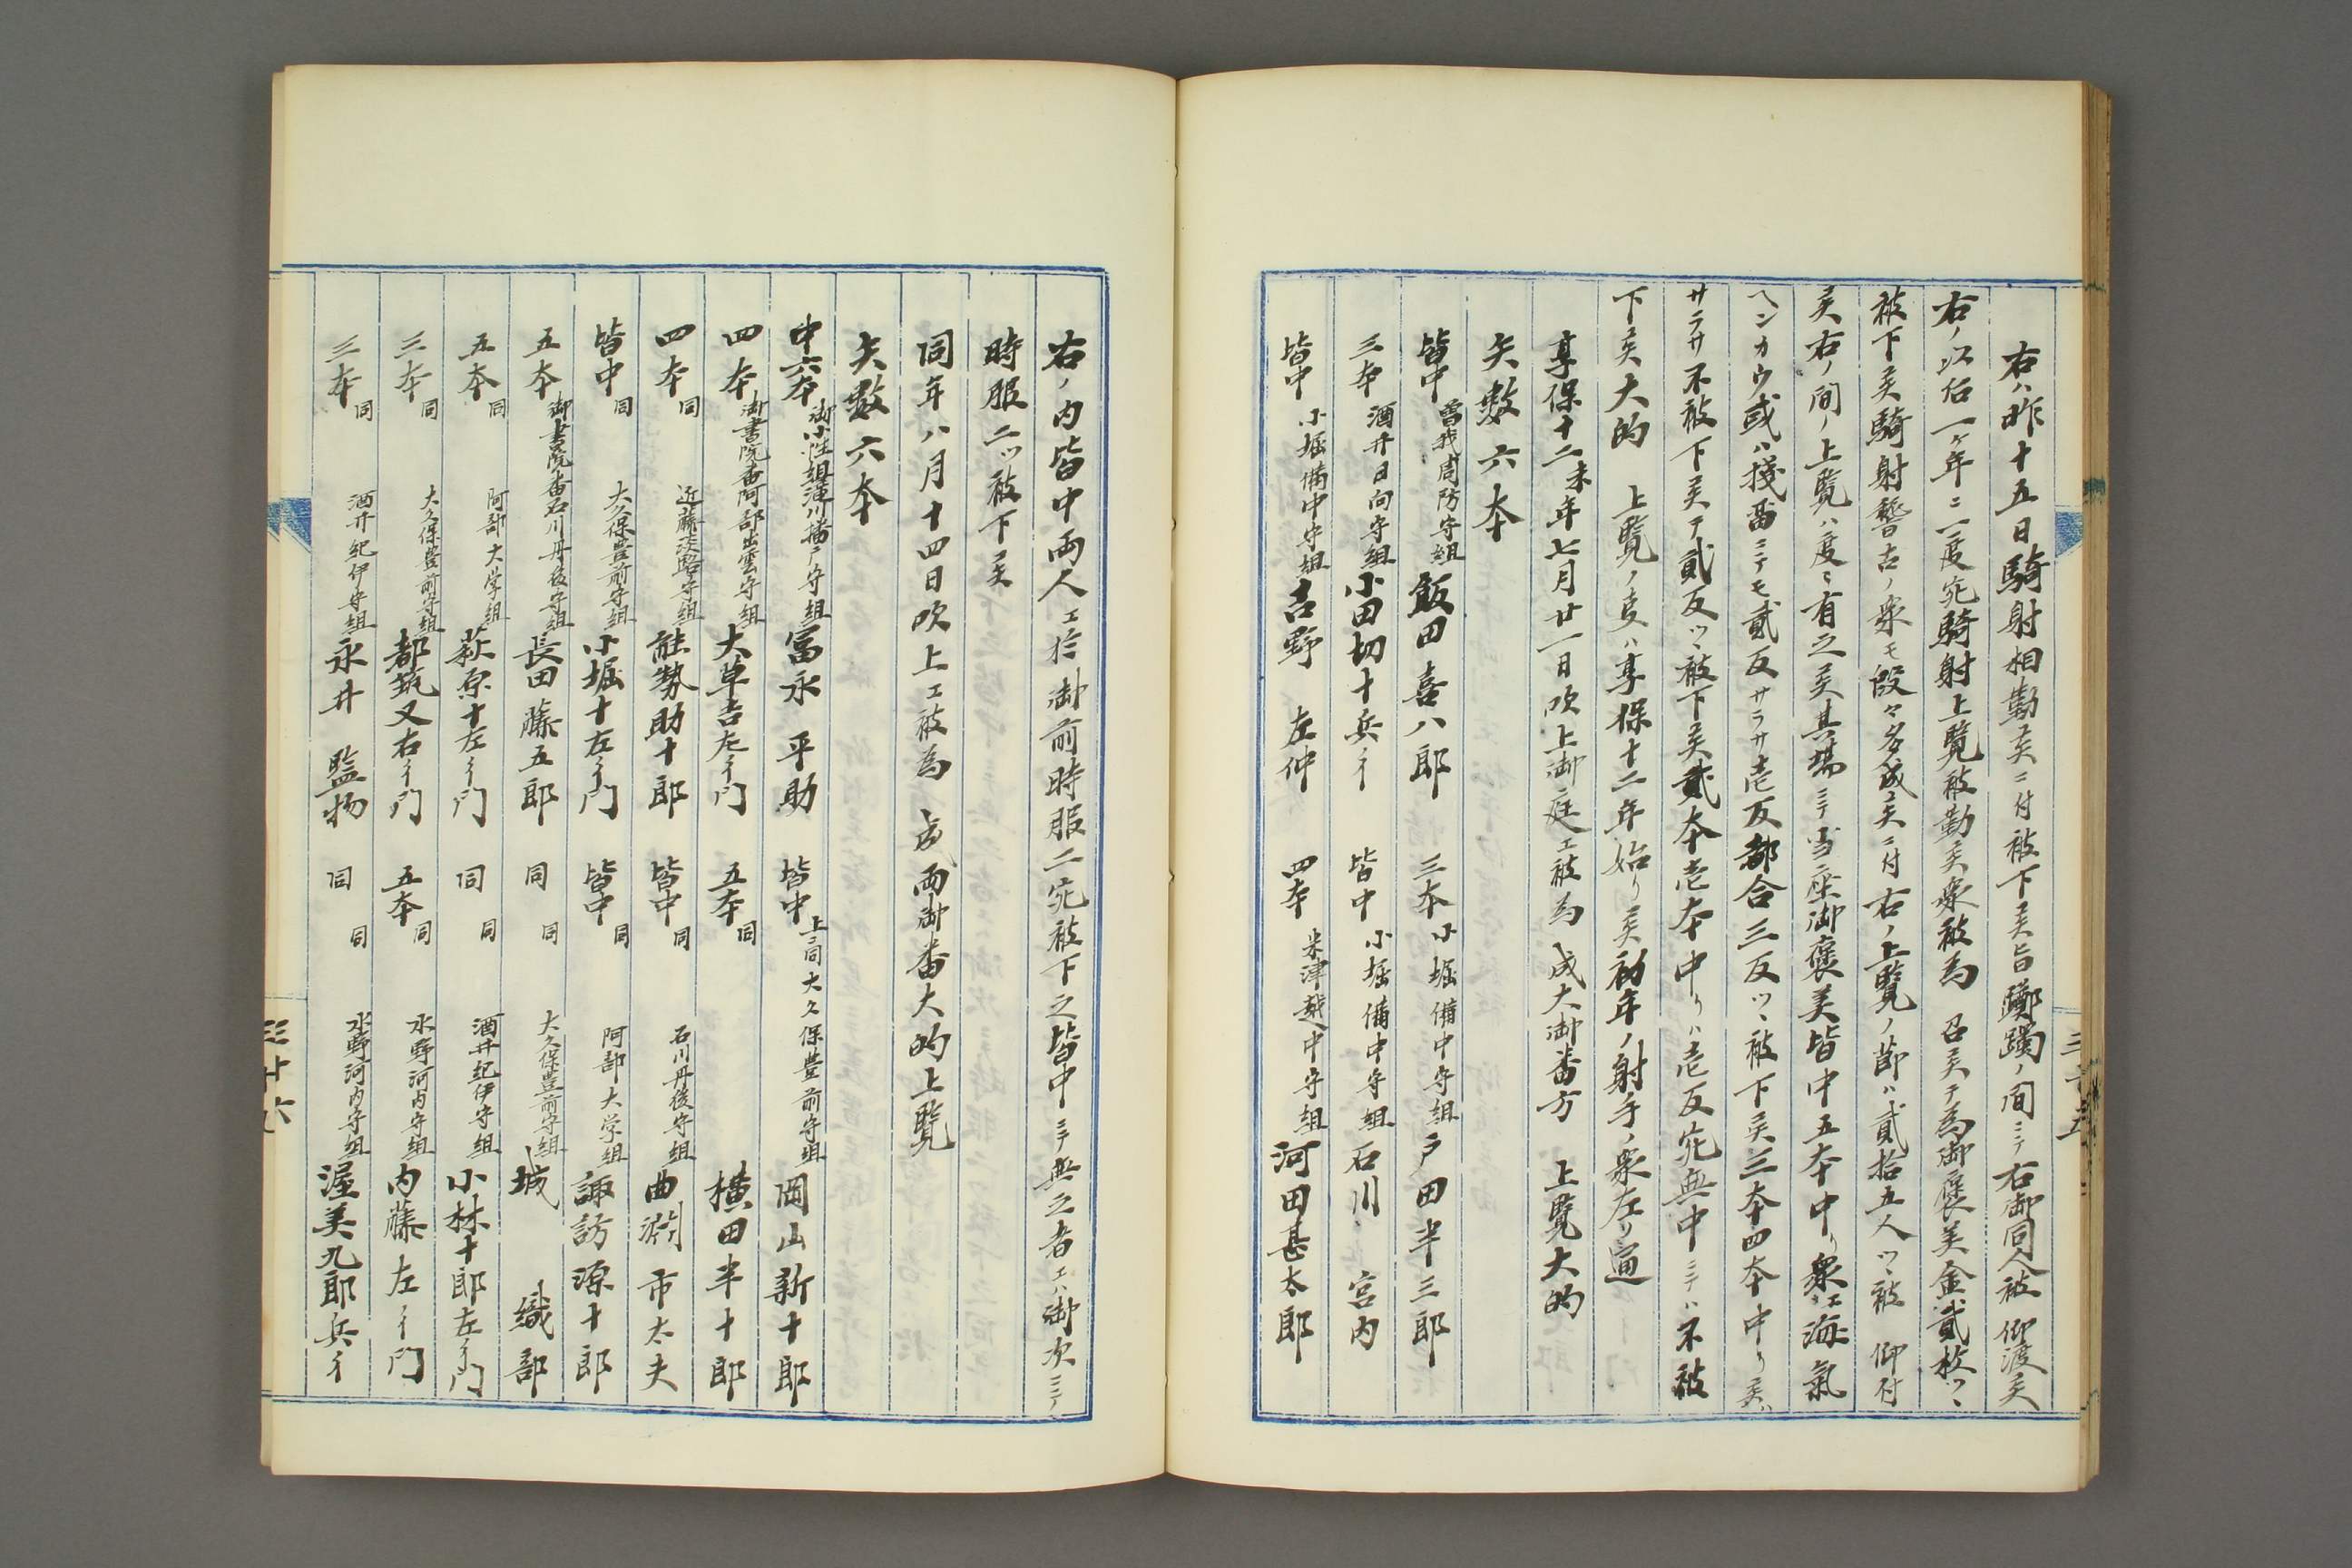 右ハ昨十五日騎射相勤候ニ付被下候旨躑躅ノ間ニテ右御同人被 仰渡候
右ノ以后一ヶ年ニ一度宛騎射上覧被勤候衆被為 召候テ為御褒美金貳枚ツヽ
被下候騎射稽古ノ衆モ段々多成候ニ付右ノ上覧ノ節ハ貳拾五人ツヽ被 仰付
候右ノ間ノ上覧ハ度々有之候其場ニテ当座御褒美皆中五本中リ衆エ海氣
ヘンカウ或ハ桟留ニテモ貳反サラサ壱反都合三反ツヽ被下候三本四本中リ候ハ
サラサ不被下候テ貳反ツヽ被下候貳本壱本中リハ壱反宛無中ニテハ不被
下候大的 上覧ノ支ハ享保十二年始リ候初年ノ射手ノ衆左リ通
享保十二未年七月廿一日吹上御庭エ被為 成大御番方 上覧大的
矢数六本
皆中 曽我周防守組 飯田喜八郎 三本 小堀備中守組 戸田半三郎
三本 酒井日向守組 小田切十兵衛 皆中 小堀備中守組 石川宮内
皆中 小堀備中守組 吉野左仲 四本 米津越中守組 河田甚太郎
三十五
右ノ内皆中両人エ於御前時服二宛被下之皆中ニテ無之者エハ御次ニテ
時服二ツ被下候
同年八月十四日吹上エ被為 成両御番大的上覧
矢数六本
中六本 御小性組酒川播广守組 冨永平助 皆中 上ニ同大久保豊前守組 岡山新十郎
四本 御書院番阿部出雲守組 大草吉左衛門 五本 同 横田半十郎
四本 同 近藤淡路守組 能勢助十郎 皆中 同 石川丹後守組 曲渕市太夫
皆中 同 大久保豊前守組 小堀十左衛門 皆中 同 阿部大学組 諏訪源十郎
五本 御書院番石川丹後守組 長田藤五郎 同 同 大久保豊前守組 城織部
五本 同 阿部大学組 萩原十左衛門 同 同 酒井紀伊守組 小林十郎左衛門
三本 同 大久保豊前守組 都筑又右衛門 五本 同 水野河内守組 内藤左衛門
三本 同 酒井紀伊守組 永井監物 同 同 水野河内守組 渥美九郎兵衛
三十六